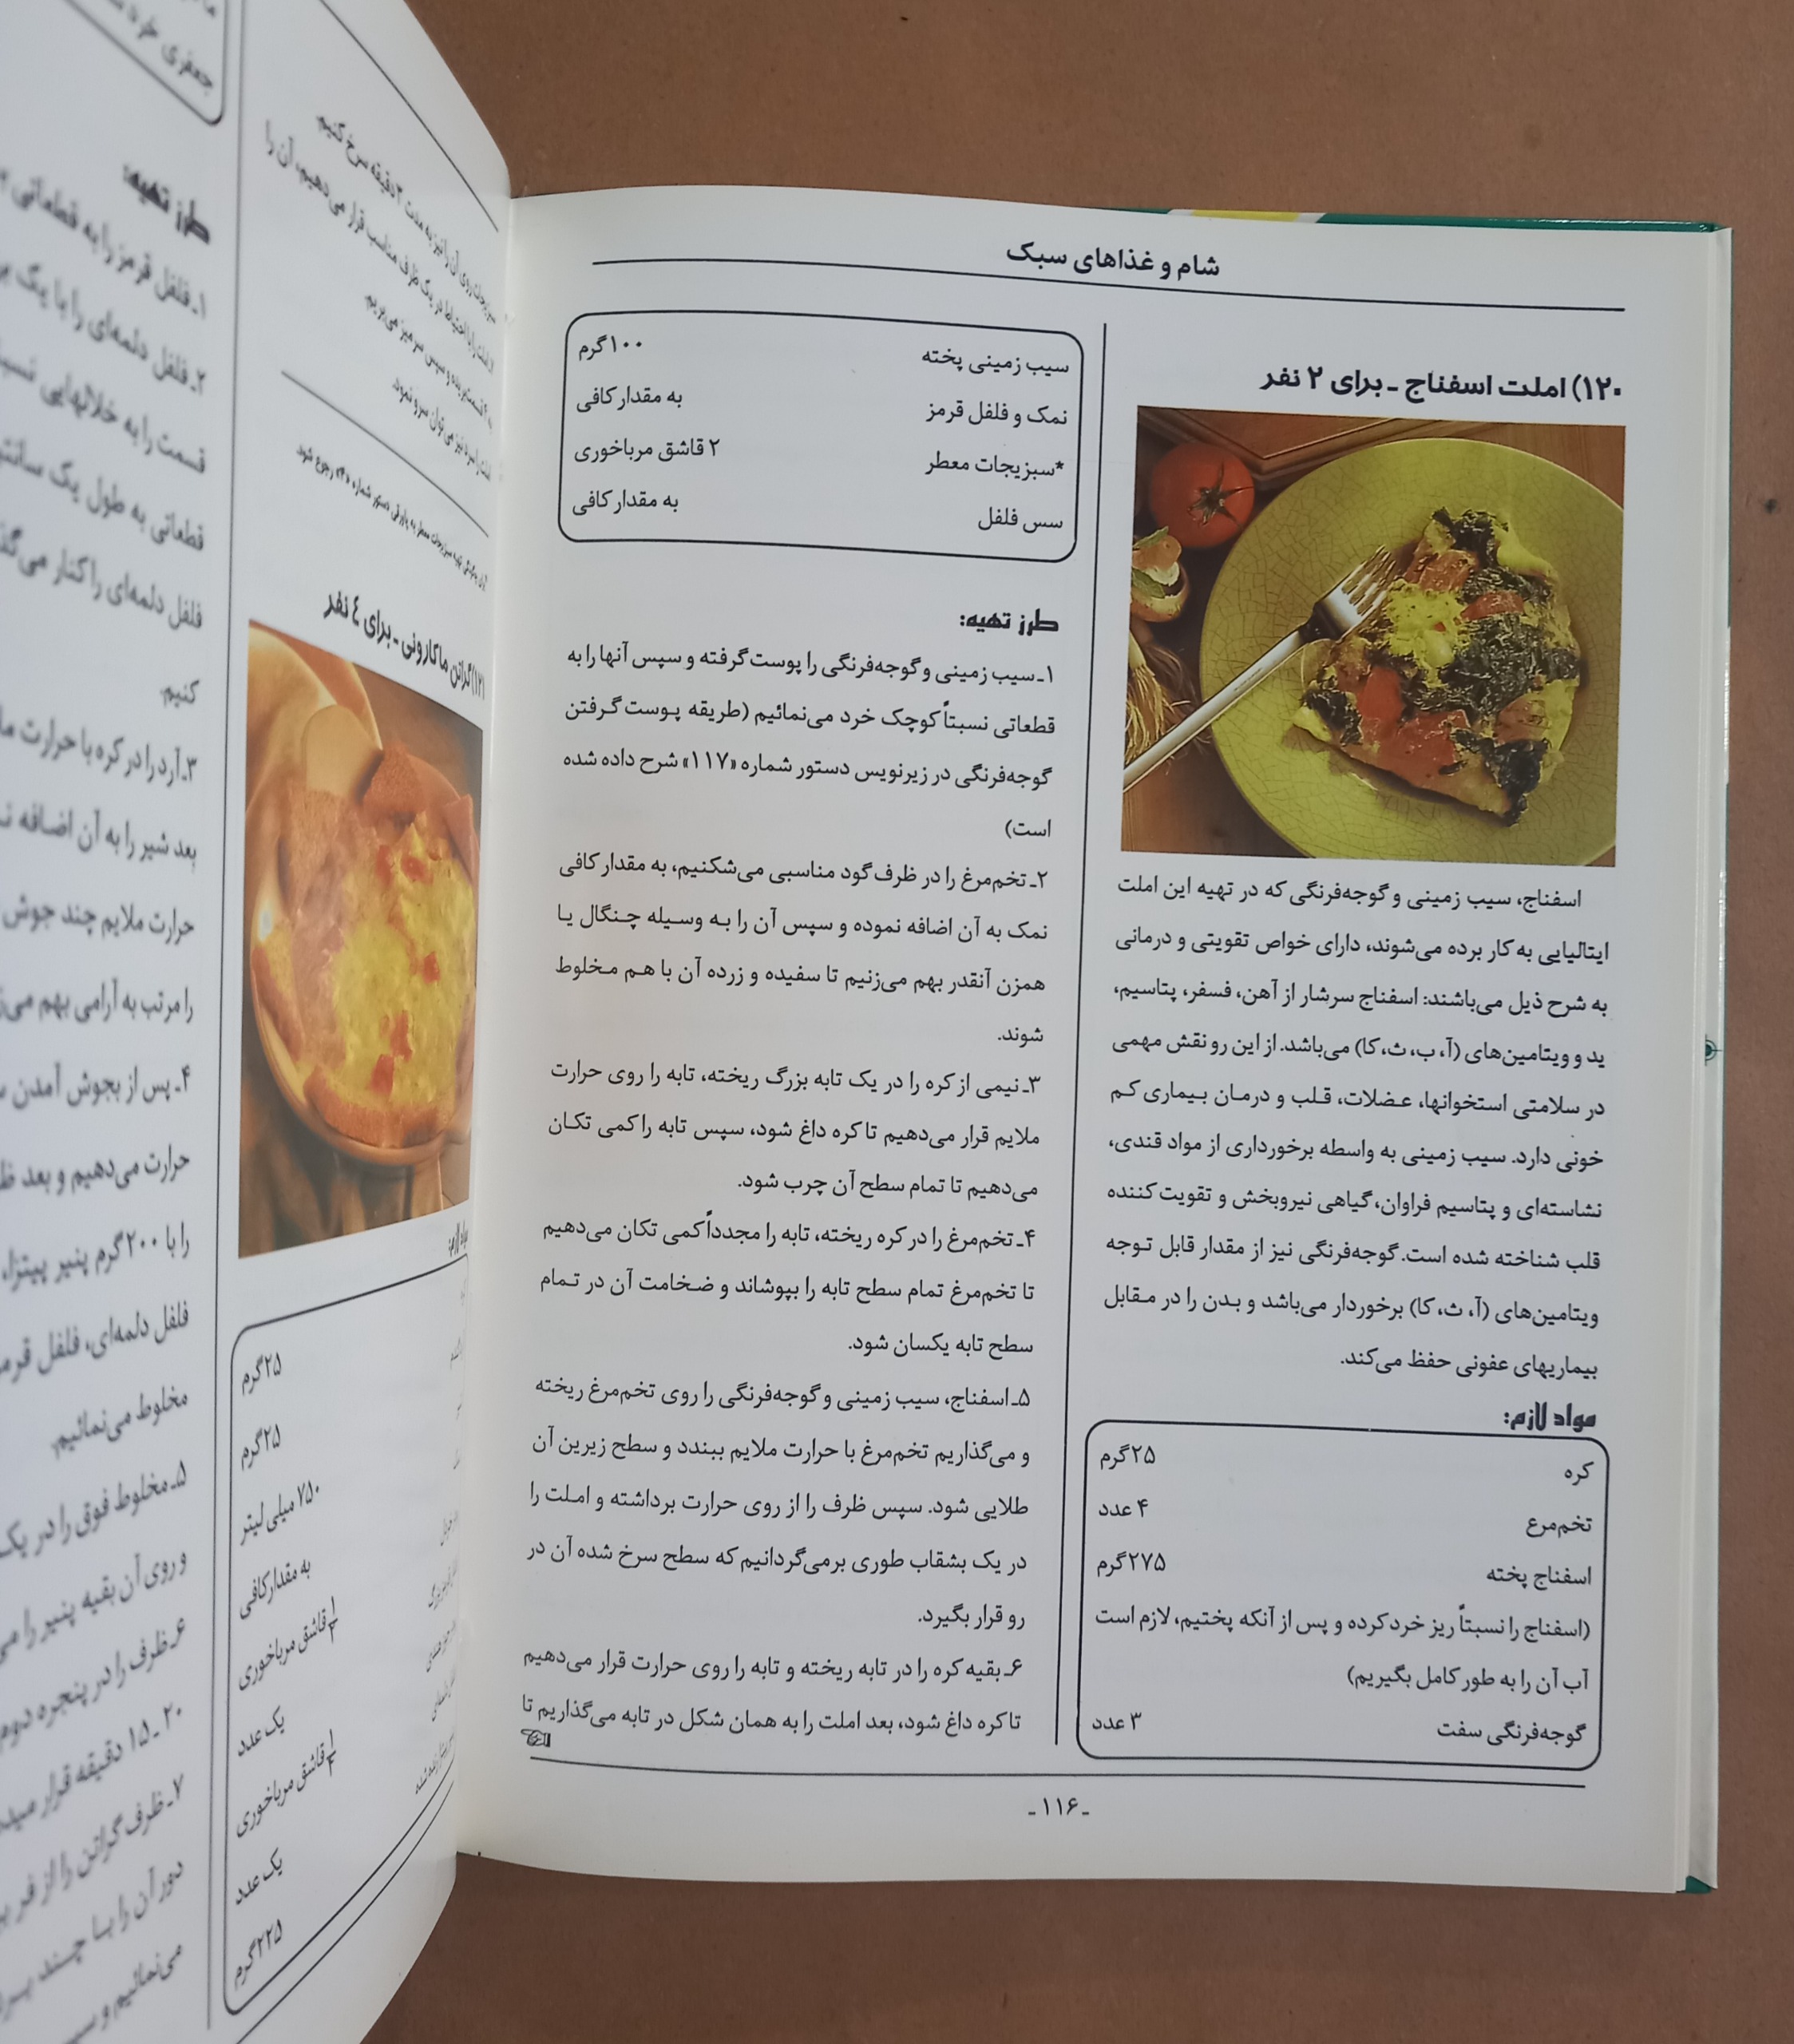 شام و غذاهای سبک
۱۲۰) املت اسفناج ـ برای ۲ نفر
اسفناج، سیب زمینی و گوجه‌فرنگی که در تهیه این املت
ایتالیایی به کار برده می‌شوند، دارای خواص تقویتی و درمانی
به شرح ذیل می‌باشند: اسفناج سرشار از آهن، فسفر، پتاسیم،
ید و ویتامین‌های (آ، ب، ث، کا) می‌باشد. از این رو نقش مهمی
در سلامتی استخوانها، عضلات، قلب و درمان بیماری کم
خونی دارد. سیب زمینی به واسطه برخورداری از مواد قندی،
نشاسته‌ای و پتاسیم فراوان، گیاهی نیروبخش و تقویت کننده
قلب شناخته شده است. گوجه‌فرنگی نیز از مقدار قابل توجه
ویتامین‌های (آ، ث، کا) برخوردار می‌باشد و بدن را در مقابل
بیماریهای عفونی حفظ می‌کند.
مواد لازم:
کره ۲۵ گرم
تخم‌مرع ۴ عدد
اسفناج پخته ۲۷۵ گرم
(اسفناج را نسبتاً ریز خرد کرده و پس از آنکه پختیم، لازم است
آب آن را به طور کامل بگیریم)
گوجه‌فرنگی سفت ۳ عدد
سیب زمینی پخته ۱۰۰ گرم
نمک و فلفل قرمز به مقدار کافی
*سبزیجات معطر ۲ قاشق مرباخوری
سس فلفل به مقدار کافی
طرز تهیه:
۱ـ سیب زمینی و گوجه‌فرنگی را پوست گرفته و سپس آنها را به
قطعاتی نسبتاً کوچک خرد می‌نمائیم (طریقه پوست گرفتن
گوجه‌فرنگی در زیرنویس دستور شماره «۱۱۷» شرح داده شده
است)
۲ـ تخم‌مرغ را در ظرف گود مناسبی می‌شکنیم، به مقدار کافی
نمک به آن اضافه نموده و سپس آن را به وسیله چنگال یا
همزن آنقدر بهم می‌زنیم تا سفیده و زرده آن با هم مخلوط
شوند.
۳ـ نیمی از کره را در یک تابه بزرگ ریخته، تابه را روی حرارت
ملایم قرار می‌دهیم تا کره داغ شود، سپس تابه را کمی تکان
می‌دهیم تا تمام سطح آن چرب شود.
۴ـ تخم‌مرغ را در کره ریخته، تابه را مجدداً کمی تکان می‌دهیم
تا تخم‌مرغ تمام سطح تابه را بپوشاند و ضخامت آن در تمام
سطح تابه یکسان شود.
۵ـ اسفناج، سیب زمینی و گوجه‌فرنگی را روی تخم‌مرغ ریخته
و می‌گذاریم تخم‌مرغ با حرارت ملایم ببندد و سطح زیرین آن
طلایی شود. سپس ظرف را از روی حرارت برداشته و املت را
در یک بشقاب طوری برمی‌گردانیم که سطح سرخ شده آن در
رو قرار بگیرد.
۶ـ بقیه کره را در تابه ریخته و تابه را روی حرارت قرار می‌دهیم
تا کره داغ شود، بعد املت را به همان شکل در تابه می‌گذاریم تا
ـ ۱۱۶ ـ
سبزیجات روی آن را نیز به مدت ۳ دقیقه سرخ کنیم.
املت را با احتیاط در یک ظرف مناسب قرار می‌دهیم، آن را
قسمت بریده و سپس سر میز می‌بریم.
املت را سرد نیز می‌توان سرو نمود.
۱۲۱) گراتن ماکارونی ـ برای ٤ نفر
۲۵ گرم
۲۵ گرم
۷۵۰ میلی لیتر
به مقدار کافی
قاشق مرباخوری
یک عدد
قاشق مرباخوری
یک عدد
۲۲۵ گرم
جعفری خرد
طرز تهیه:
۱ـ فلفل قرمز را به قطعاتی
۲ـ فلفل دلمه‌ای را با یک
قسمت را به خلالهایی
قطعاتی به طول یک
فلفل دلمه‌ای را کنار
کنیم.
۳ـ آرد را در کره با حرارت
بعد شیر را به آن اضافه
حرارت ملایم چند جوش
را مرتب به آرامی بهم
۴ـ پس از بجوش آمدن
حرارت می‌دهیم و بعد
را با ۲۰۰ گرم پنیر پیتزا،
فلفل دلمه‌ای، فلفل
مخلوط می‌نمائیم.
۵ـ مخلوط فوق را در یک
و روی آن بقیه پنیر را
۶ـ ظرف را در پنجره دوم
۲۰ ـ ۱۵ دقیقه قرار
۷ـ ظرف گراتن را از فر
دور آن را با چند
می‌نمائیم و